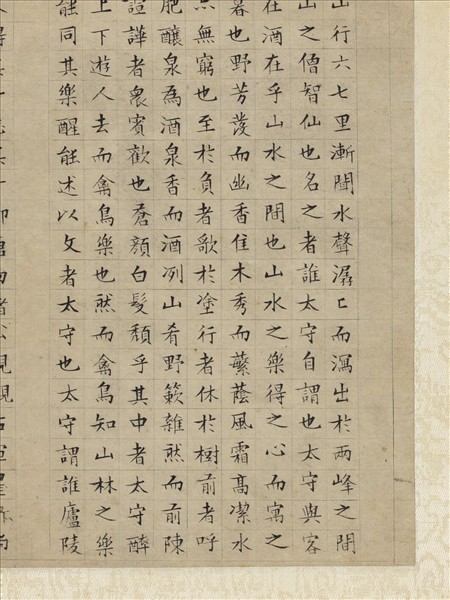 山行六七里漸聞水聲潺〻而瀉出於兩峰之間
山之僧智仙也名之者誰太守自謂也太守與客
在酒在乎山水之間也山水之樂得之心而寓之
暮也野芳發而幽香佳木秀而蘩蔭風霜高潔水
無窮也至於負者歌於塗行者休於樹前者呼
肥釀泉為酒泉香而酒冽山肴野蔌雜然而前陳
諠譁者衆賓歡也蒼顏白髮頹乎其中者太守醉
上下遊人去而禽鳥樂也然而禽鳥知山林之樂
能同其樂醒能述以文者太守也太守謂誰廬陵